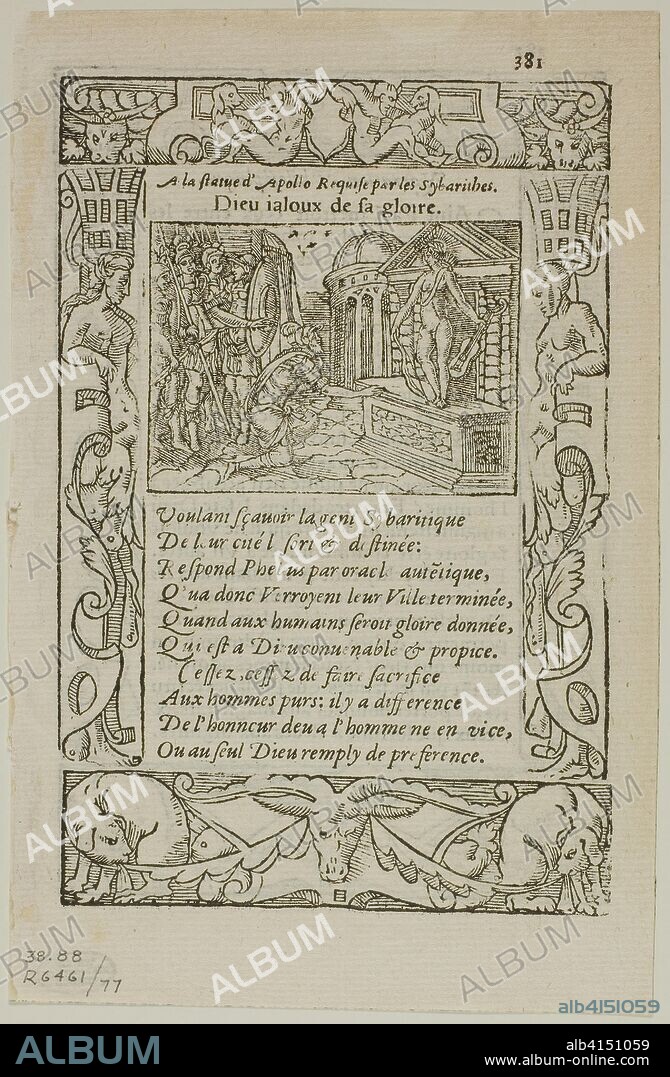 381
A la statue d' Apollo Requise par les Sybarithes.
Dieu ialoux de sa gloire.
Voulant sçavoir la gent Sybaritique
De leur cité l sort & destinée:
Respond Phebus par oracle autētique,
Q'ua donc Verroyent leur Ville terminée,
Quand aux humains seroit gloire donnée,
Qui est a Dieu convenable & propice.
Cessez, cessez de faire sacrifice
Aux hommes purs: il y a difference
De l'honneur deu a l'homme ne en vice,
Ou au seul Dieu remply de preference.
38.88
R6461/77
ALBUM
alb4151059
ALBUM
alb4151059
www.album-online.com